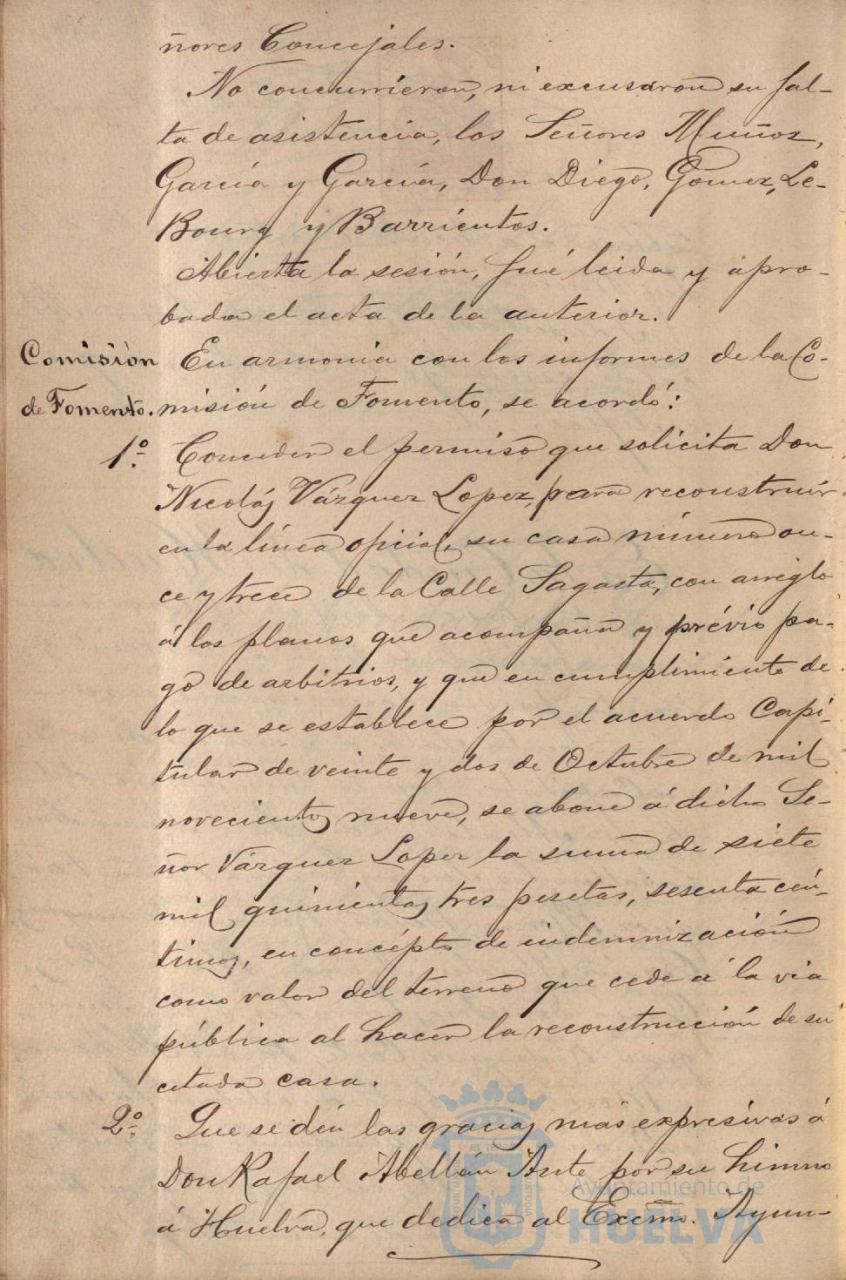 ñores Concejales.
No concurrieron, ni excusaron su fal-
ta de asistencia, los Señores Muñoz,
García y García, Don Diego, Gómez, Le-
Bourg y Barrientos.
Abierta la sesión, fué leida y apro-
bada el acta de la anterior.
Comisión
de Fomento.
En armonia con los informes de la Co-
misión de Fomento, se acordó:
1º. Conceder el permiso que solicita Don
Nicolás Vázquez Lopez, para reconstruir
en la línea oficial, su casa número on-
ce y trece de la Calle Sagasta, con arreglo
á los planos que acompaña y prévio pa-
go de arbitrios, y que en cumplimiento de
lo que se establece por el acuerdo Capi-
tular de veinte y dos de Octubre de mil
novecientos nueve, se abone á dicho Se-
ñor Vázquez Lopez la suma de siete
mil quinientas tres pesetas, sesenta cén-
timos, en concépto de indemnización
como valor del terreno que cede á la via
pública al hacer la reconstrucción de su
citada casa.
2º. Que se dén las gracias más expresivas á
Don Rafael Abellán Ante por su himno
á Huelva, que dedica al Excmo. Ayun-
Ayuntamiento de
HUELVA